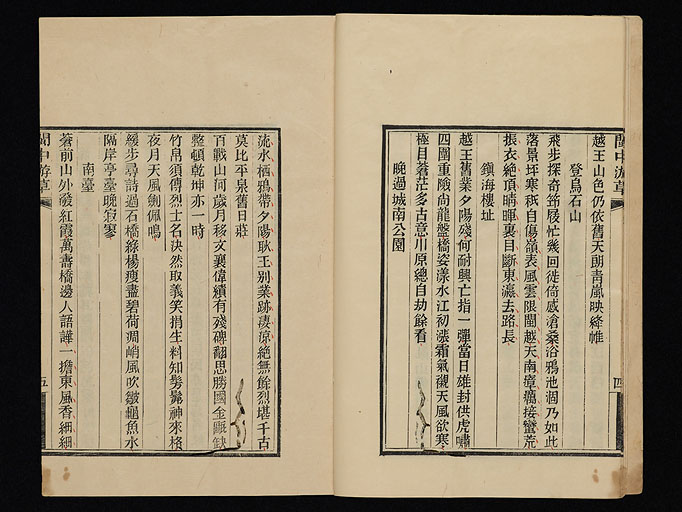 閩中游草
四
越王山色仍依舊天朗靑嵐映絳帷
登烏石山
飛步探奇笻屐忙幾回徙倚感滄桑浴鴉池涸乃如此
落景坪寒秖自傷嶺表風雲限閩越天南瘴癘接蠻荒
振衣絶頂晴暉裏目斷東瀛去路長
鎭海樓址
越王舊業夕陽殘何耐興亡指一彈當日雄封供虎嘯
四圍重險尙龍盤橋姿漾水江初漲霜氣襯天風欲寒
極目蒼茫多古意川原總自劫餘看
晚過城南公園
流水栖鴉帶夕陽耿王別業跡淒凉絶無餘烈堪千古
莫比平泉舊日莊
百戰山河歲月移文襄偉績有殘碑翻思勝國金甌缺
整頓乾坤亦一時
竹帛須傳烈士名決然取義笑捐生料知髣髴神來格
夜月天風劍佩鳴
緩步尋詩過石橋綠楊瘦盡碧荷凋峭風吹皺龜魚水
隔岸亭臺晚寂寥
南臺
蒼前山外發紅霞萬壽橋邊人語譁一擔東風香細細
閩中游草
五